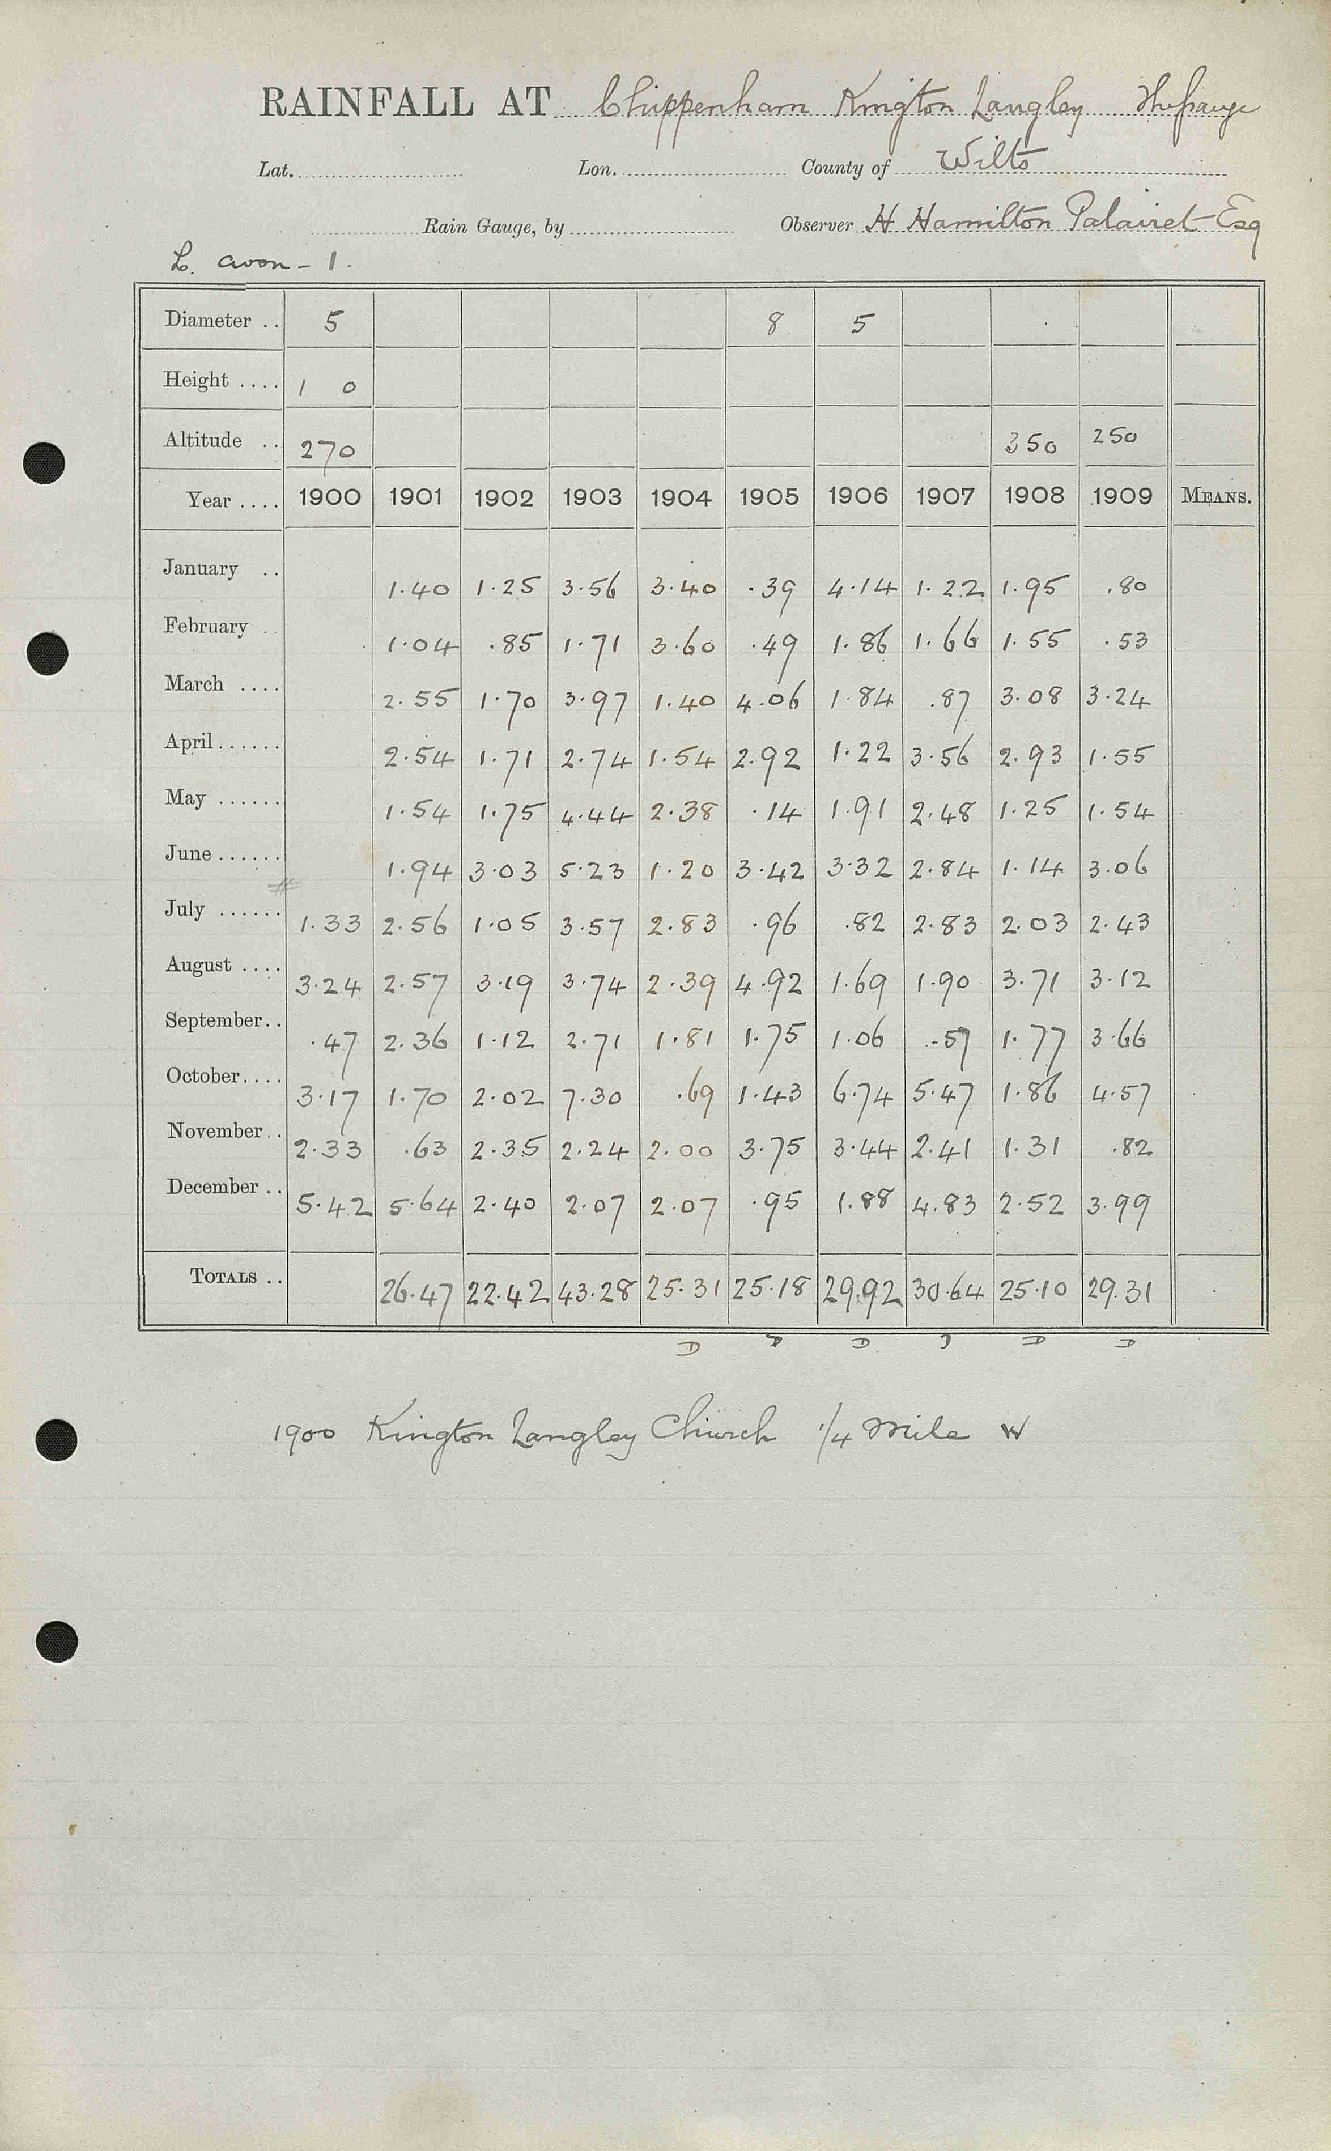 RAINFALL AT Chippenham Kington Langley The Grange
Lat. Lon. County of Wilts
Rain Gauge, by Observer H Hamilton Palairet Esq
L. Avon - 1.
Diameter .. 5 8 5
Height .... 1 0
Altitude .. 270 350 250
Year .... 1900 1901 1902 1903 1904 1905 1906 1907 1908 1909 MEANS.
January .. 1.40 1.25 3.56 3.40 .39 4.14 1.22 1.95 .80
February .. 1.04 .85 1.71 3.60 .49 1.86 1.66 1.55 .53
March .... 2.55 1.70 3.97 1.40 4.06 1.84 .87 3.08 3.24
April...... 2.54 1.71 2.74 1.54 2.92 1.22 3.56 2.93 1.55
May ...... 1.54 1.75 4.44 2.38 .14 1.91 2.48 1.25 1.54
June...... 1.94 3.03 5.23 1.20 3.42 3.32 2.84 1.14 3.06
July ...... 1.33 2.56 1.05 3.57 2.83 .96 .82 2.83 2.03 2.43
August .... 3.24 2.57 3.19 3.74 2.39 4.92 1.69 1.90 3.71 3.12
September.. .47 2.36 1.12 2.71 1.81 1.75 1.06 .57 1.77 3.66
October.... 3.17 1.70 2.02 7.30 .69 1.43 6.74 5.47 1.86 4.57
November.. 2.33 .63 2.35 2.24 2.00 3.75 3.44 2.41 1.31 .82
December .. 5.42 5.64 2.40 2.07 2.07 .95 1.88 4.83 2.52 3.99
TOTALS .. 26.47 22.42 43.28 25.31 25.18 29.92 30.64 25.10 29.31
D D D D D D
1900 Kington Langley Church 1/4 Mile W